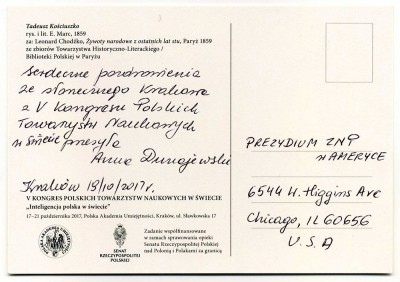 Tadeusz Kościuszko
rys. i lit. E. Marc, 1859
za: Leonard Chodźko, Żywoty narodowe z ostatnich lat stu, Paryż 1859
ze zbiorów Towarzystwa Historyczno-Literackiego /
Biblioteki Polskiej w Paryżu
Serdeczne pozdrowienia
ze słonecznego Krakowa
z V Kongresu Polskich
Towarzystw Naukowych
w Świecie przesyła
Anna Dunajewska
Kraków 18/10/2017r.
V KONGRES POLSKICH TOWARZYSTW NAUKOWYCH W ŚWIECIE
„Inteligencja polska w świecie”
17–21 października 2017, Polska Akademia Umiejętności, Kraków, ul. Sławkowska 17
SENAT
RZECZYPOSPOLITEJ
POLSKIEJ
Zadanie współfinansowane
w ramach sprawowania opieki
Senatu Rzeczypospolitej Polskiej
nad Polonią i Polakami za granicą
PREZYDIUM ZNP
w AMERYCE
6544 W. Higgins Ave
Chicago, IL 60656
U.S.A